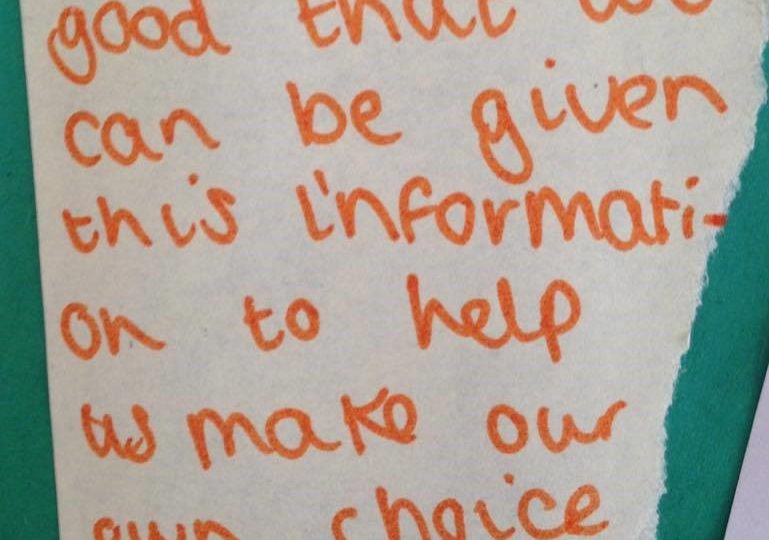 good that we
can be given
this informati-
on to help
us make our
own choice